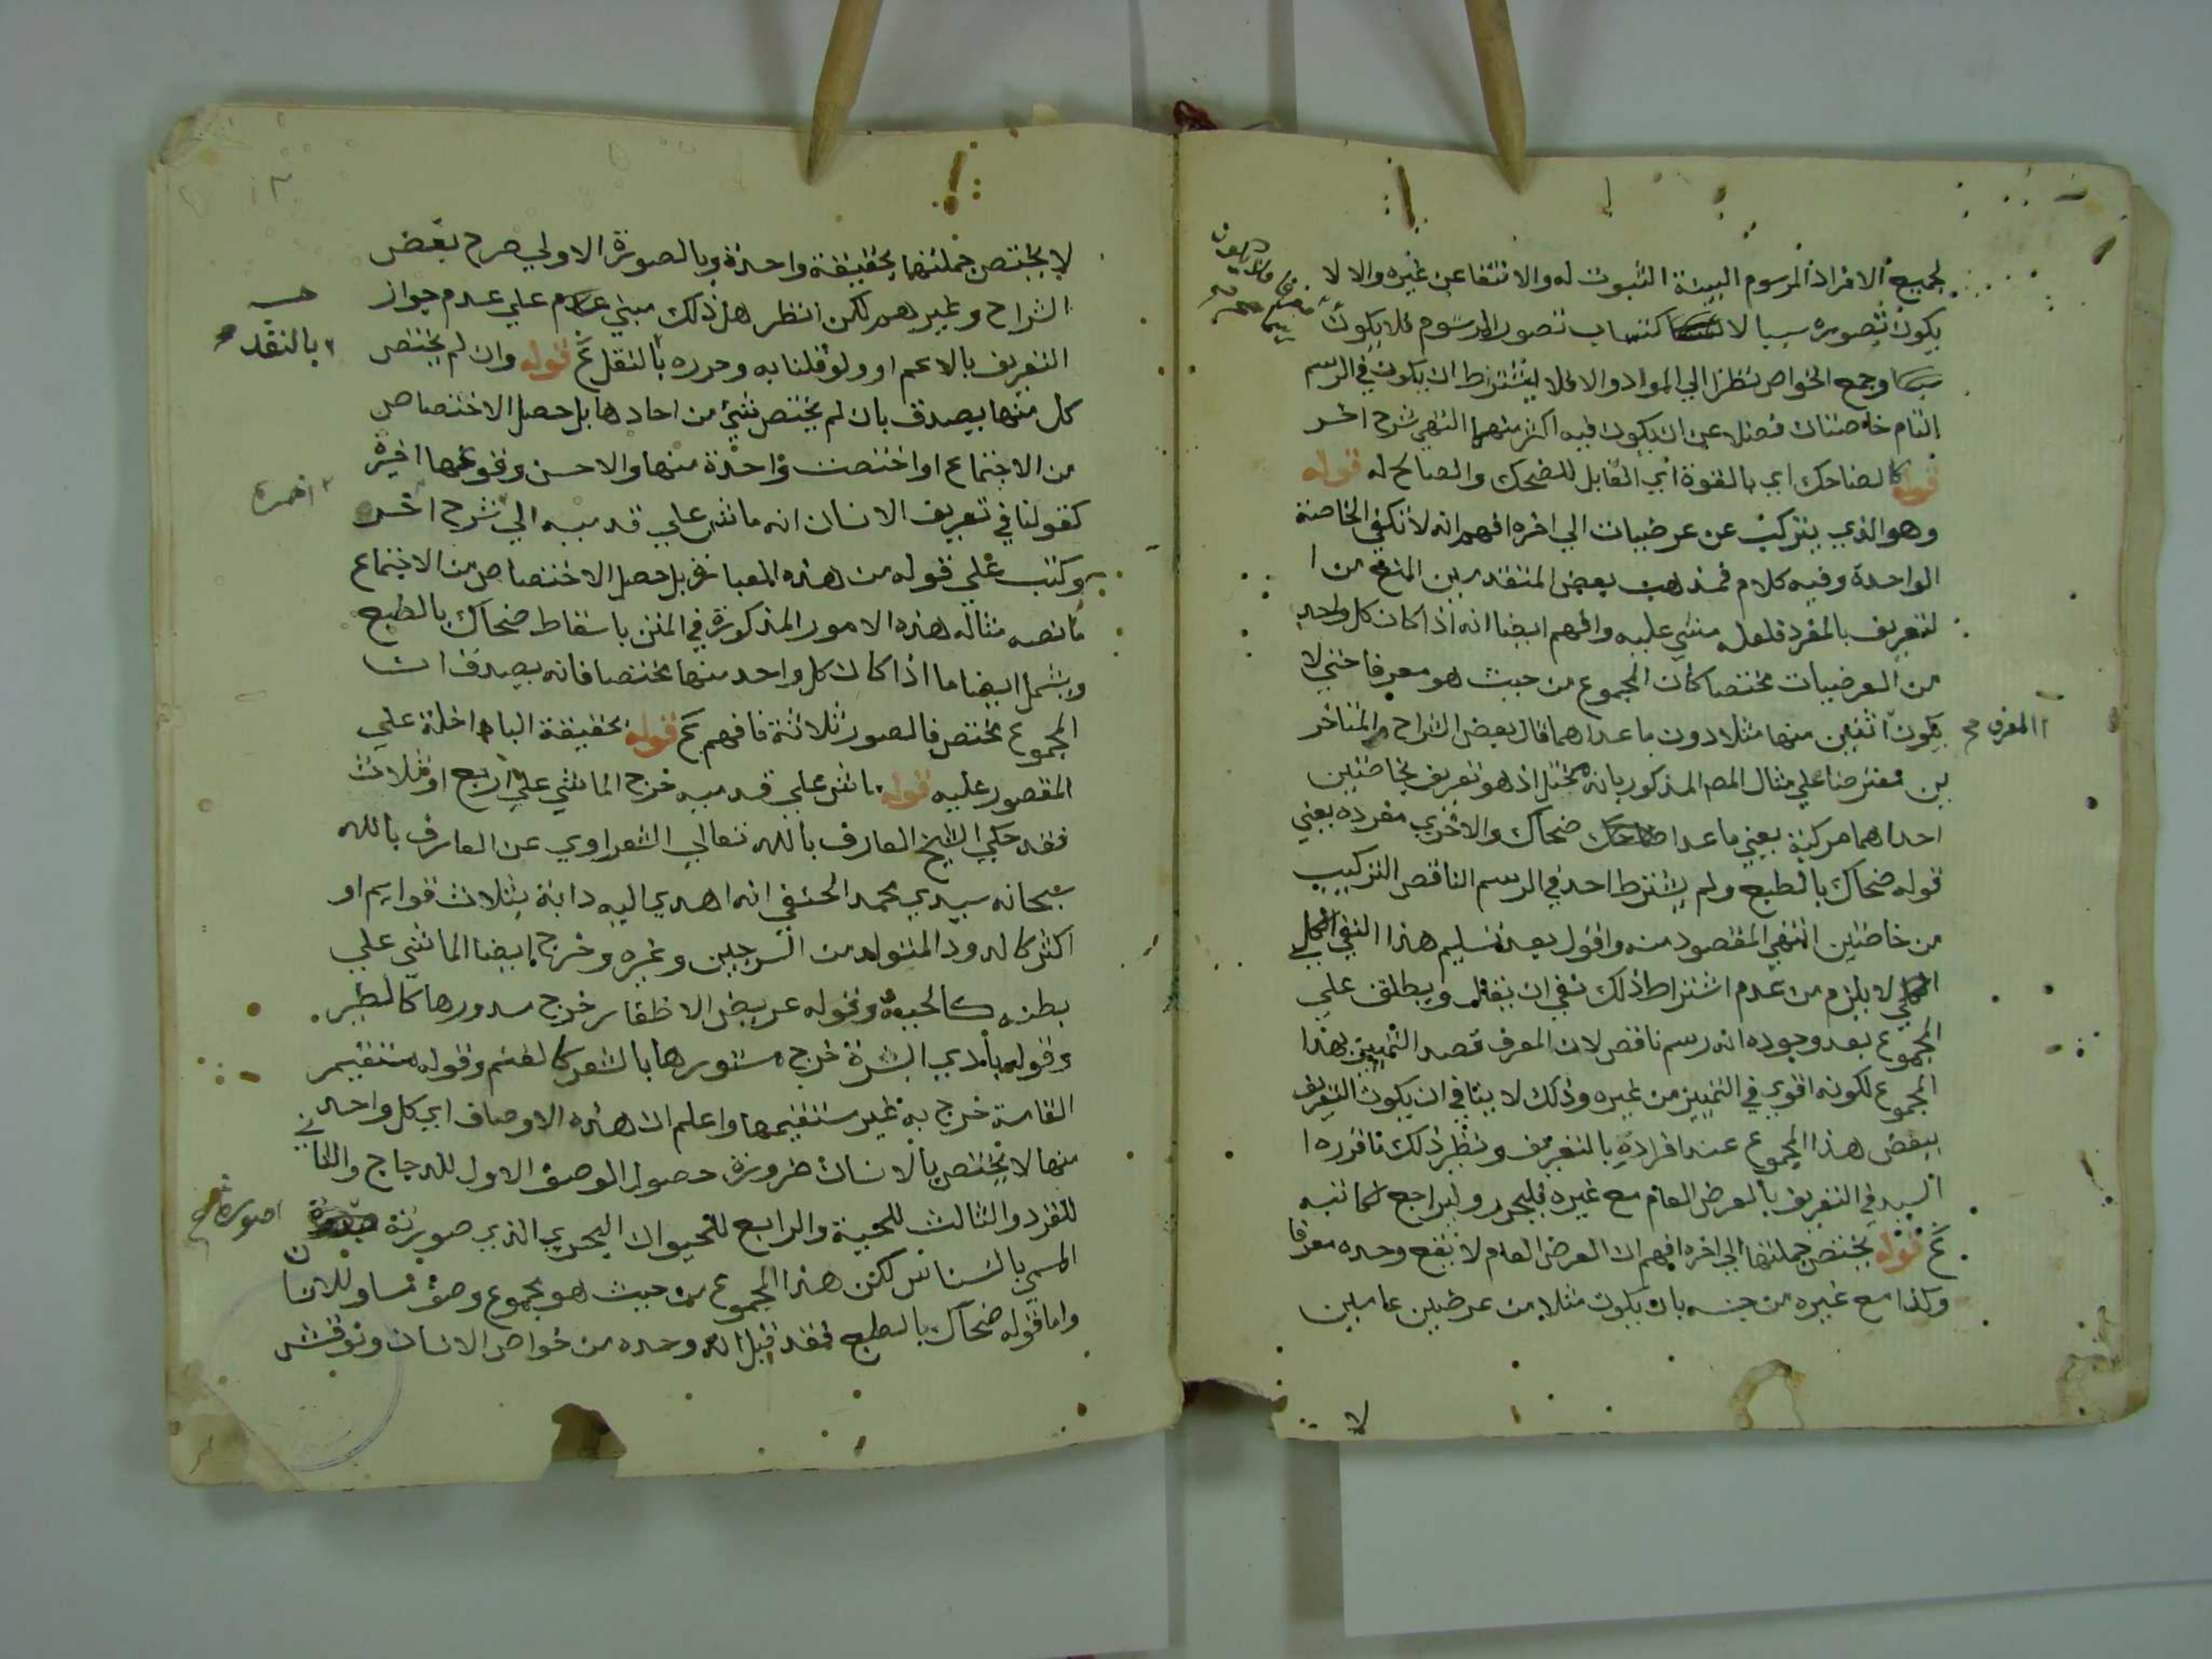 لجميع الافراد المرسوم البينة الثبوت له والانتفا عن غيره والا لا
يكون تصوره سببا لاكتساب تصور المرسوم فلا يكون
وجمع الخواص نظرا الي المواد والا فلا يشترط ان يكون في الرسم
التام خاصتان فضلا عن ان يكون فيه اكثر منهما انتهي شرح اخر
قوله كالضاحك اي بالقوة اي القابل للضحك والصالح له قوله
وهو الذي يتركب عن عرضيات الي اخره افهم انه لا تكفي الخاصة
الواحدة وفيه كلام فمذهب بعض المتقدمين المنع من ا
لتعريف بالمفرد فلعله مشي عليه وافهم ايضا انه اذا كان كل واحد
من العرضيات مختصا كان المجموع من حيث هو معرفا حتي لا
يكون اثنين منها مثلا دون ما عداهما قال بعض الشراح والمتاخر
المعرف صح
ين معترضا علي مثال المص المذكور بانه مختل اذ هو تعريف بخاصتين
احداهما مركبة يعني ما عدا ضحاك والاخري مفرده يعني
قوله ضحاك بالطبع ولم يشترط احد في الرسم الناقص التركيب
من خاصتين انتهي المقصود منه واقول بعد تسليم هذا النفي الكلي
لا يلزم من عدم اشتراط ذلك نفي ان يقال ويطلق علي
المجموع بعد وجوده انه رسم ناقص لان المعرف قصد التمييز بهذا
المجموع لكونه اقوي في التمييز من غيره وذلك لا ينافي ان يكون التعريف
ببعض هذا المجموع عند افراده بالتعريف ونظير ذلك ما قرره ا
السيد في التعريف بالعرض العام مع غيره فليحرر وليراجع
قوله تختص جملتها الي اخره افهم ان العرض العام لا يقع وحده معرفا
وكذا مع غيره من جنسه بان يكون مثلا من عرضين عامين
لا
لا يختص جملتها بحقيقة واحدة وبالصورة الاولي صرح بعض
الشراح وغيرهم لكن انظر هل ذلك مبني علي عدم جواز
التعريف بالاعم او ولو قلنا به وحرره بالنقل قوله وان لم يختص
بالنقد
كل منها يصدق بان لم يختص شيء من احادها بل حصل الاختصاص
من الاجتماع او اختصت واحدة منها والاحسن وقوعها اخيرة
كقولنا في تعريف الانسان انه ماش علي قدميه الي شرح اخر
وكتب علي قوله من هذه العبارة بل حصل الاختصاص من الاجتماع
ما نصه مثاله هذه الامور المذكورة في المتن باسقاط ضحاك بالطبع
ويشمل ايضا ما اذا كان كل واحد منها مختصا فانه يصدق ان
المجموع مختص فالصور ثلاثة فافهم قوله بحقيقة البا داخلة علي
المقصور عليه قوله ماش علي قدميه خرج الماشي علي اربع او ثلاث
فقد حكي الشيخ العارف بالله تعالي الشعراوي عن العارف بالله
سبحانه سيدي محمد الحنفي انه اهدي اليه دابة بثلاث قوايم او
اكثر كالدود المتولد من السرجين وغيره وخرج ايضا الماشي علي
بطنه كالحية وقوله عريض الاظفار خرج مدورها كالطير
وقوله بادي البشرة خرج مستورها بالشعر كالغنم وقوله مستقيم
القامة خرج به غير مستقيمها واعلم ان هذه الاوصاف اي كل واحد
منها لا يختص بالانسان ضرورة حصول الوصف الاول للدجاج والثاني
للقرد والثالث للحية والرابع للحيوان البحري الذي صورته
صورة صح
المسمي بالنسناس لكن هذا المجموع من حيث هو مجموع وصف مساو للانسان
واما قوله ضحاك بالطبع فقد قيل انه وحده من خواص الانسان ونوقش